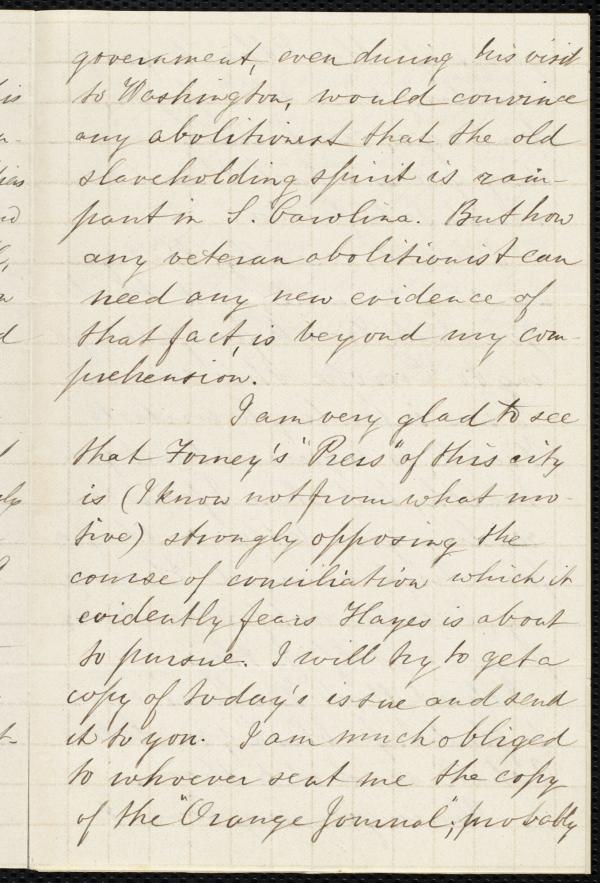 government, even during his visit
to Washington, would convince
any abolitionist that the old
slaveholding spirit is ram-
pant in S. Carolina. But how
any veteran abolitionist can
need any new evidence of
that fact, is beyond my com-
prehension.
I am very glad to see
that Forney's "Press" of this city
is (I know not from what mo-
tive) strongly opposing the
course of conciliation which it
evidently fears Hayes is about
to pursue. I will try to get a
copy of today's issue and send
it to you. I am much obliged
to whoever sent me the copy
of the "Orange Journal", probably